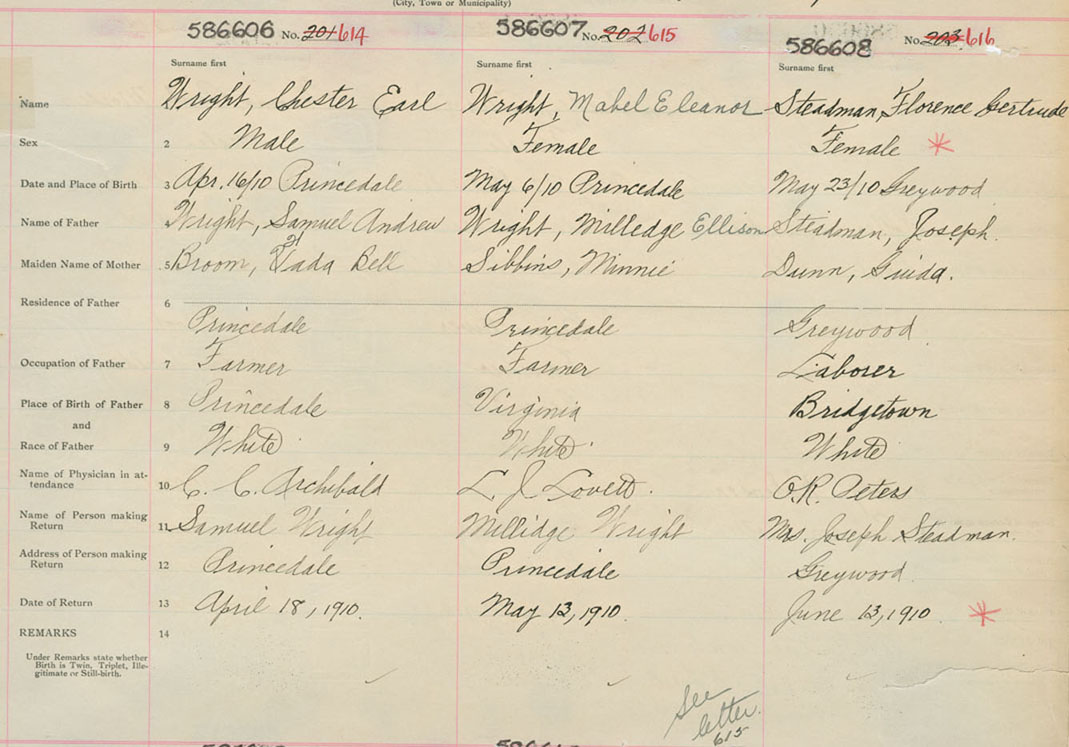 (City, Town or Municipality)
586606 No. 201 614 586607 No. 202 615 586608 No. 203 616
Surname first Surname first Surname first
Name Wright, Chester Earl Wright, Mabel Eleanor Steadman, Florence Gertrude
Sex 2 Male Female Female *
Date and Place of Birth 3 Apr. 16/10 Princedale May 6/10 Princedale May 23/10 Greywood
Name of Father 4 Wright, Samuel Andrew Wright, Milledge Ellison Steadman, Joseph.
Maiden Name of Mother 5 Broom, Bell Sibbins, Minnie Dunn, Guida.
Residence of Father 6
Princedale Princedale Greywood
Occupation of Father 7 Farmer Farmer Laborer
Place of Birth of Father 8 Princedale Virginia Bridgetown
and
Race of Father 9 White White White
Name of Physician in at-
tendance 10 C. C. Archibald L. J. Lovett. O.R. Peters
Name of Person making
Return 11 Samuel Wright Millidge Wright Mrs. Joseph Steadman.
Address of Person making
Return 12 Princedale Princedale Greywood
Date of Return 13 April 18, 1910. May 13, 1910. June 13, 1910 *
REMARKS 14
Under Remarks state whether
Birth is Twin, Triplet, Ille-
gitimate or Still-birth.
See
letter.
615